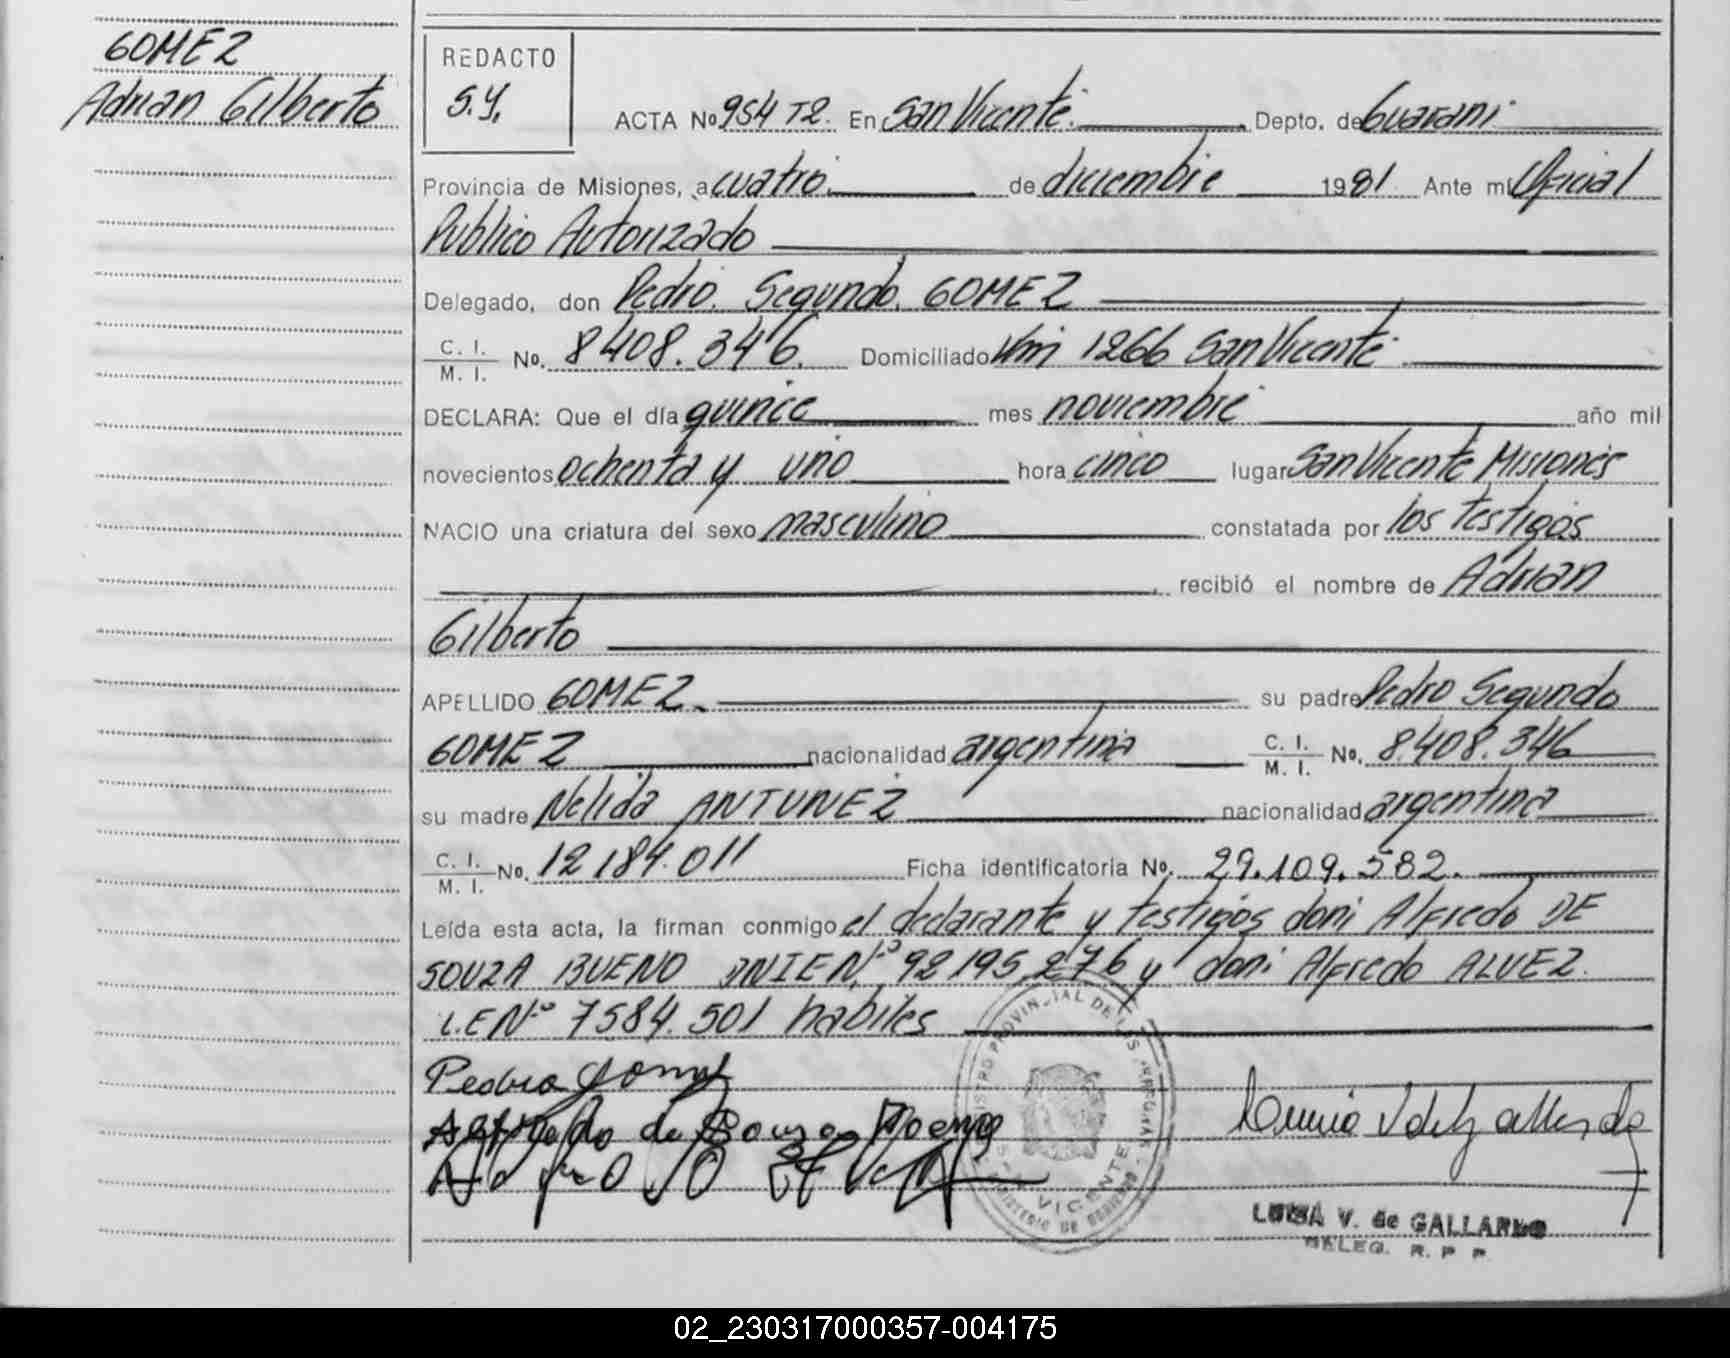 GOMEZ
Adrian Gilberto
REDACTO
S.Y.
ACTA No 954 T2. En San Vicente. Depto. de Guarani
Provincia de Misiones, a cuatro de diciembre 1981 Ante mí Oficial
Publico Autorizado
Delegado, don Pedro Segundo GOMEZ
C. I. M. I. No. 8408.346. Domiciliado Km 1266 San Vicente
DECLARA: Que el día quince mes noviembre año mil
novecientos ochenta y uno hora cinco lugar San Vicente Misiones
NACIO una criatura del sexo masculino constatada por los testigos
recibió el nombre de Adrian
Gilberto
APELLIDO GOMEZ. su padre Pedro Segundo
GOMEZ nacionalidad argentina C. I. M. I. No. 8.408.346
su madre Nelida ANTUNEZ nacionalidad argentina
C. I. M. I. No. 12.184.011 Ficha identificatoria No. 29.109.582.
Leída esta acta, la firman conmigo el declarante y testigos don: Alfredo DE
SOUZA BUENO DNIE Nº 92195276 y don: Alfredo ALVEZ.
L.E Nº 7584.501 habiles
Pedro Gomez
Alfredo de Souza Boeno
REGISTRO PROVINCIAL DE LAS PERSONAS
SAN VICENTE
MINISTERIO DE GOBIERNO
LUISA V. de GALLARDO
DELEG. R. P. P.
02_230317000357-004175